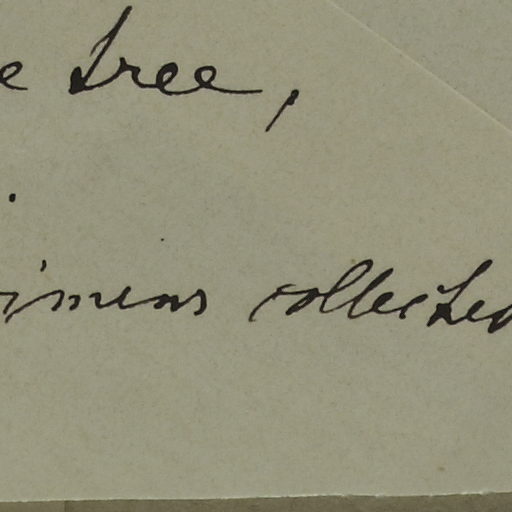 e tree,
imens collected